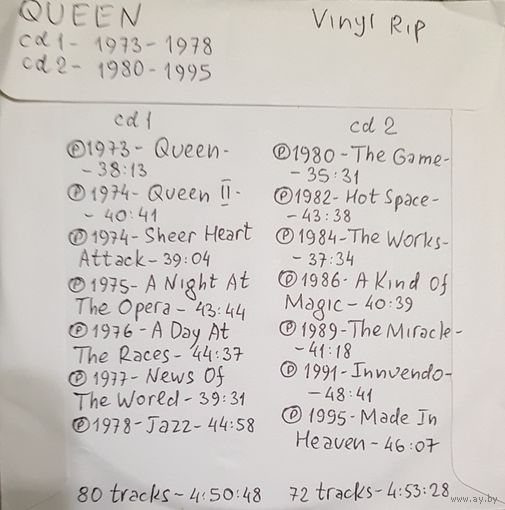 QUEEN
Vinyl Rip
cd 1 - 1973 - 1978
cd 2 - 1980 - 1995
cd 1
℗1973 - Queen -
- 38:13
℗1974 - Queen II -
- 40:41
℗1974 - Sheer Heart
Attack - 39:04
℗1975 - A Night At
The Opera - 43:44
℗1976 - A Day At
The Races - 44:37
℗1977 - News Of
The World - 39:31
℗1978 - Jazz - 44:58
80 tracks - 4:50:48
cd 2
℗1980 - The Game -
- 35:31
℗1982 - Hot Space -
- 43:38
℗1984 - The Works -
- 37:34
℗1986 - A Kind Of
Magic - 40:39
℗1989 - The Miracle -
- 41:18
℗1991 - Innvendo -
- 48:41
℗1995 - Made In
Heaven - 46:07
72 tracks - 4:53:28
www.ay.by